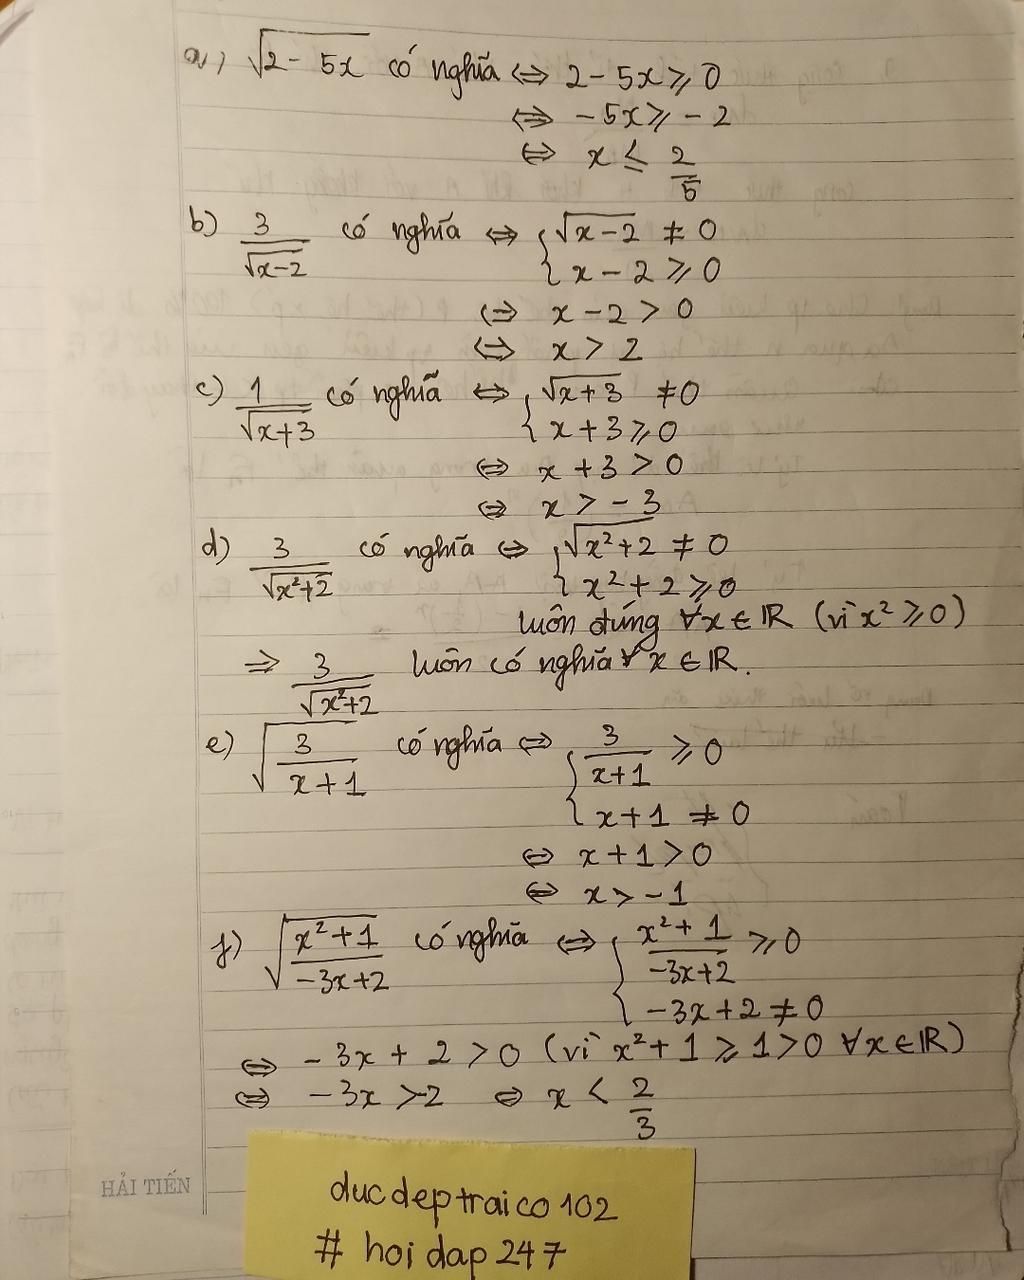 a) √(2 - 5x) có nghĩa ⇔ 2 - 5x ⩾ 0
⇔ - 5x ⩾ - 2
⇔ x ≤ 2/5
b) 3/√(x-2) có nghĩa ⇔ { √(x-2) ≠ 0
x - 2 ⩾ 0
⇔ x - 2 > 0
⇔ x > 2
c) 1/√(x+3) có nghĩa ⇔ { √(x+3) ≠ 0
x + 3 ⩾ 0
⇔ x + 3 > 0
⇔ x > - 3
d) 3/√(x²+2) có nghĩa ⇔ { √(x²+2) ≠ 0
x² + 2 ⩾ 0
luôn đúng ∀x ∈ ℝ (vì x² ⩾ 0)
⇒ 3/√(x²+2) luôn có nghĩa ∀ x ∈ ℝ.
e) √(3/(x+1)) có nghĩa ⇔ { 3/(x+1) ⩾ 0
x + 1 ≠ 0
⇔ x + 1 > 0
⇔ x > - 1
f) √((x²+1)/(-3x+2)) có nghĩa ⇔ { (x²+1)/(-3x+2) ⩾ 0
-3x + 2 ≠ 0
⇔ - 3x + 2 > 0 (vì x² + 1 ⩾ 1 > 0 ∀x ∈ ℝ)
⇔ - 3x > -2 ⇔ x < 2/3
HẢI TIẾN
ducdeptraico102
# hoidap247